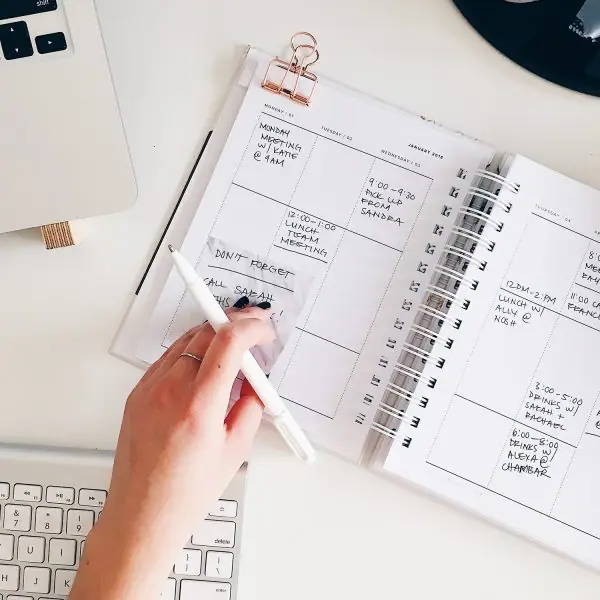 JANUARY 2018
MONDAY / 01
TUESDAY / 02
WEDNESDAY / 03
MONDAY
MEETING
W/ KATIE
@ 9AM
9:00-9:30
PICK UP
FROM
SANDRA
12:00-1:00
LUNCH
TEAM
MEETING
DON'T FORGET
CALL SARAH
THURSDAY / 04
12PM-2PM
LUNCH W/
ALLY @
NOSH
11:00
3:00-5:00
DRINKS W/
SARAH +
RACHAEL
6:00-8:00
DRINKS W/
ALEXA @
CHAMBAR
&
7
*
8
(
9
U
I
J
K
delete